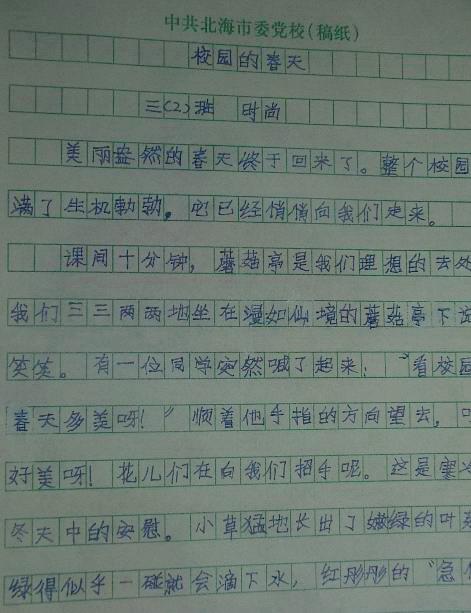 中共北海市委党校(稿纸)
校园的春天
三(2)班 时尚
美丽盎然的春天终于回来了。整个校园
满了生机勃勃。它已经悄悄向我们走来。
课间十分钟,蘑菇亭是我们理想的去处
我们三三两两地坐在漫如仙境的蘑菇亭下说
笑笑。有一位同学突然喊了起来:“看校园
春天多美呀!”顺着他手指的方向望去,
好美呀!花儿们在向我们招手呢。这是寒冷
冬天中的安慰。小草猛地长出了嫩绿的叶
绿得似乎一碰就会滴下水,红彤彤的“急